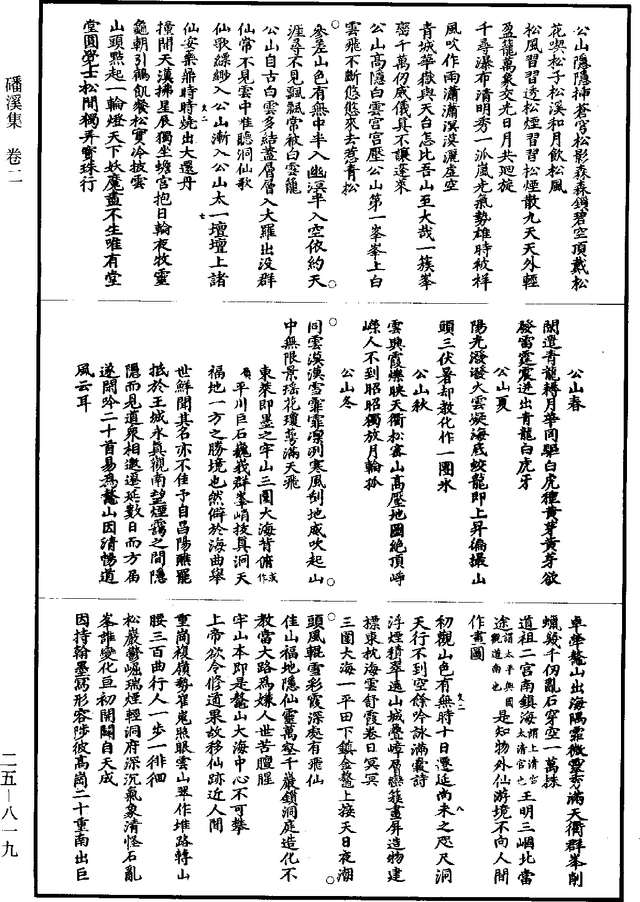 磻溪集 卷二
公山隱隱插蒼穹松影森森鎖碧空頂戴松
花喫松子松溪和月飲松風
松風習習透松煙習習松煙散九天天外輕
盈龍萬象交光日月共迴旋
千尋瀑布清明秀一派嵐光氣勢雄時被祥
風吹作雨瀟瀟溟漠灑虛空
青城華嶽與天台怎比吾山至大哉一簇峯
巒千萬仞威儀真不讓蓬萊
公山高隱白雲宮宮壓公山第一峯峯上白
雲飛不斷悠悠來去惹青松
參差山色有無中半入幽溟半入空依約天
涯尋不見飄飄常被白雲籠
公山自古白雲多結蓋層層入大羅出沒群
仙常不見雲中惟聽洞仙歌
仙歌縹緲入公山漸入公山太一壇壇上諸
仙安藥鼎時時燒出大還丹
撞開天漢拂星辰獨坐蟾宮抱日輪夜牧靈
龜朝引鶴飢餐松實冷披雲
山頭點起一輪燈天下妖魔盡不生唯有堂
堂圓覺士松間獨弄寶珠行
公山春
閑遣青龍耨月華同驅白虎種黃芽黃芽欲
發雷霆震迸出青龍白虎牙
公山夏
陽光潑潑火雲凝海底蛟龍即上昇偏撮山
頭三伏暑却教化作一團氷
公山秋
雲興霞爍映天衢松雲山高壓地圖絕頂崢
嶸人不到昭昭獨放月輪孤
公山冬
同雲漠漠雪霏霏凜冽寒風刮地威吹起山
中無限景瑤花瓊蕊滿天飛
東萊即墨之牢山三圍大海背俯或作
負平川巨石巍峩群峯峭拔真洞天
福地一方之勝境也然僻於海曲舉
世鮮聞其名亦不佳予自昌陽醮罷
抵於王城永真觀南望煙靄之間隱
隱而見道衆相邀遷延數日而方屆
遂閑吟二十首易為鼇山因清暢道
風云耳
卓犖鼇山出海隅霏微靈秀滿天衢群峯削
蠟幾千仞亂石穿空一萬株
道祖二宮南鎮海謂上清宮太清宮也王明三崓北當
途謂太平興國觀道南也是知物外仙游境不向人間
作畫圖
初觀山色有無時十日遷延尚未之咫尺洞
天行不到空餘吟詠滿囊詩
浮煙積翠遶山城疊嶂層巒簇畫屏造物建
標東枕海雲舒霞卷日冥冥
三圍大海一平田下鎮金鼇上接天日夜潮
頭風輥雪彩霞深處有飛仙
佳山福地隱仙靈萬壑千巖鎖洞庭造化不
教當大路為嫌人世苦膻腥
牢山本即是鼇山大海中心不可攀
上帝欲令修道果故移仙跡近人間
重崗複嶺勢崔嵬照眼雲山翠作堆路轉山
腰三百曲行人一步一徘徊
松巖鬱崛瑞煙輕洞府深沉氣象清怪石亂
峯誰變化亘初開闢自天成
因持翰墨寫形容陟彼高崗二十重南出巨
二五—八一九